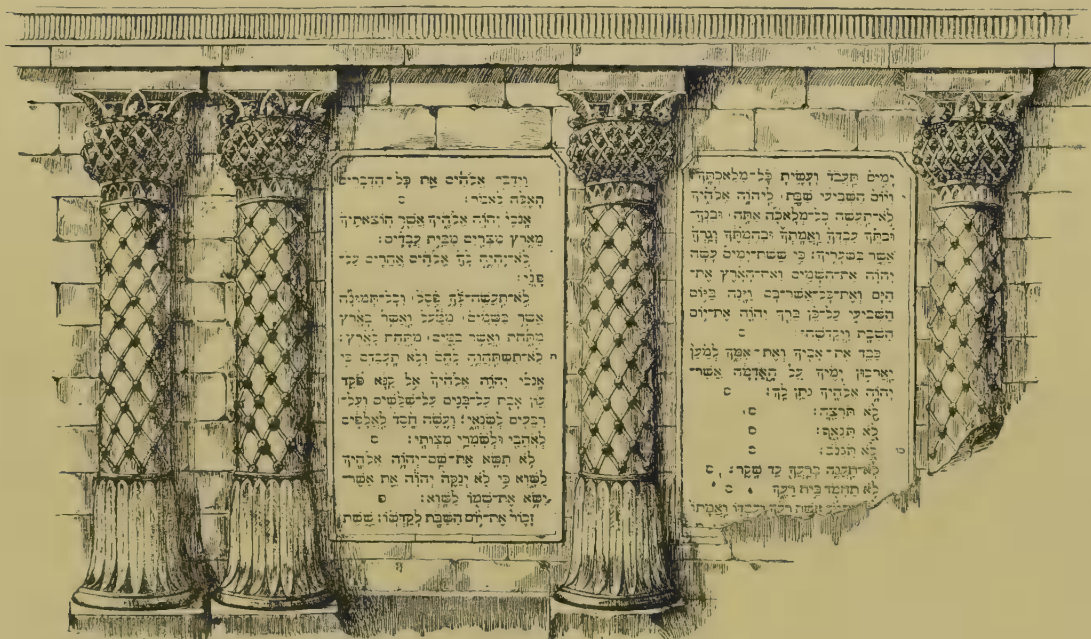 וַיְדַבֵּר אֱלֹהִים אֵת כָּל־הַדְּבָרִים
הָאֵלֶּה לֵאמֹר׃ ס
אָנֹכִי יְהוָה אֱלֹהֶיךָ אֲשֶׁר הוֹצֵאתִיךָ
מֵאֶרֶץ מִצְרַיִם מִבֵּית עֲבָדִים׃
לֹא־יִהְיֶה לְךָ אֱלֹהִים אֲחֵרִים עַל־
פָּנָי׃
לֹא־תַעֲשֶׂה־לְךָ פֶסֶל וְכָל־תְּמוּנָה
אֲשֶׁר בַּשָּׁמַיִם מִמַּעַל וַאֲשֶׁר בָּאָרֶץ
מִתָּחַת וַאֲשֶׁר בַּמַּיִם מִתַּחַת לָאָרֶץ׃
לֹא־תִשְׁתַּחֲוֶה לָהֶם וְלֹא תָעָבְדֵם כִּי
אָנֹכִי יְהוָה אֱלֹהֶיךָ אֵל קַנָּא פֹּקֵד
עֲוֹן אָבֹת עַל־בָּנִים עַל־שִׁלֵּשִׁים וְעַל־
רִבֵּעִים לְשֹׂנְאָי׃ וְעֹשֶׂה חֶסֶד לַאֲלָפִים
לְאֹהֲבַי וּלְשֹׁמְרֵי מִצְוֹתָי׃ ס
לֹא תִשָּׂא אֶת־שֵׁם־יְהוָה אֱלֹהֶיךָ
לַשָּׁוְא כִּי לֹא יְנַקֶּה יְהוָה אֵת אֲשֶׁר־
יִשָּׂא אֶת־שְׁמוֹ לַשָּׁוְא׃ פ
זָכוֹר אֶת־יוֹם הַשַּׁבָּת לְקַדְּשׁוֹ׃ שֵׁשֶׁת
יָמִים תַּעֲבֹד וְעָשִׂיתָ כָּל־מְלַאכְתֶּךָ׃
וְיוֹם הַשְּׁבִיעִי שַׁבָּת לַיהוָה אֱלֹהֶיךָ
לֹא־תַעֲשֶׂה כָל־מְלָאכָה אַתָּה וּבִנְךָ
וּבִתֶּךָ עַבְדְּךָ וַאֲמָתְךָ וּבְהֶמְתֶּךָ וְגֵרְךָ
אֲשֶׁר בִּשְׁעָרֶיךָ׃ כִּי שֵׁשֶׁת־יָמִים עָשָׂה
יְהוָה אֶת־הַשָּׁמַיִם וְאֶת־הָאָרֶץ אֶת־
הַיָּם וְאֶת־כָּל־אֲשֶׁר־בָּם וַיָּנַח בַּיּוֹם
הַשְּׁבִיעִי עַל־כֵּן בֵּרַךְ יְהוָה אֶת־יוֹם
הַשַּׁבָּת וַיְקַדְּשֵׁהוּ׃ ס
כַּבֵּד אֶת־אָבִיךָ וְאֶת־אִמֶּךָ לְמַעַן
יַאֲרִכוּן יָמֶיךָ עַל הָאֲדָמָה אֲשֶׁר־
יְהוָה אֱלֹהֶיךָ נֹתֵן לָךְ׃ ס
לֹא תִרְצָח׃ ס
לֹא תִנְאָף׃ ס
לֹא תִגְנֹב׃ ס
לֹא־תַעֲנֶה בְרֵעֲךָ עֵד שָׁקֶר׃ ס
לֹא תַחְמֹד בֵּית רֵעֶךָ ס
אֵשֶׁת רֵעֶךָ וְעַבְדּוֹ וַאֲמָתוֹ